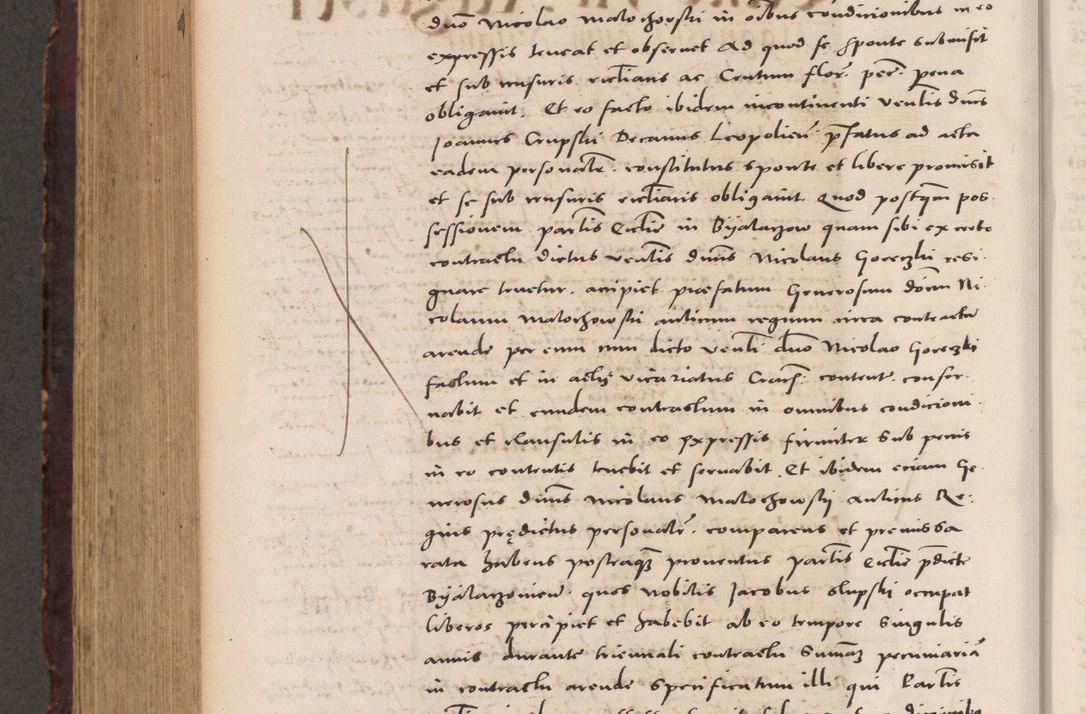 duo Nicolao Malochowski in oibus condicionibus in eo
expressis teneat et observet Ad quod se sponte submisit
et sub censuris ecclianis ac Centum flor. pec. pena
obligavit. Et eo facto ibidem incontinenti Venlis Duns
Joannes Crupski Decanus Leopolien. pfatus ad acta
eadem personalr. constitutus sponte et libere promisit
et se sub censuris eccliaris obligavit Quod postqm pos
sessionem partis Ecclie in Byalaczow quam sibi ex certo
contractu dictus Venlis duns Nicolaus Goreczki resi-
gnare tenetur. accipiet præfatum Generosum donm Ni-
colaum Malochowski aulicum regium circa contractu
arende per eum cum dicto Venli duo Nicolao Goreczki
factum et in actis vicariatus Cracs. content. conser-
vabit et eundem contractum in omnibus condicioni-
bus et clausulis in eo expressis firmiter sub penis
in eo contentis tenebit et servabit Et ibidem eciam Ge-
nerosus duns Nicolaus Malochowsky aulicus Re-
gius prędictus personalr. comparens et premissa
rata habens postquam proventus partis Ecclie pdicte
Byalaczovien. quos nobilis Jacobus Slupski occupat
liberos percipiet et habebit ab eo tempore singulis
annis durante triennali contractu summam pecuniariā
in contractu arende specificatum illi qui Partis